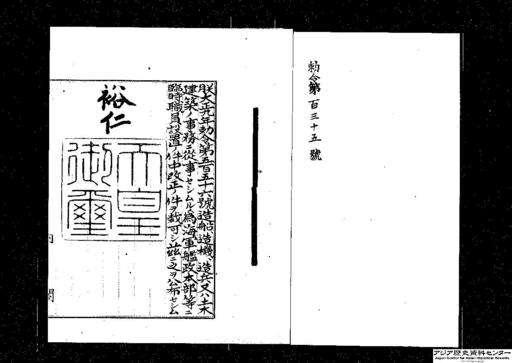 勅令第百三十五號
朕大正九年勅令第五百五十六號造船、造機、造兵又ハ土木
建築ノ事務ニ從事セシムル爲海軍艦政本部等ニ
臨時職員設置ノ件中改正ノ件ヲ裁可シ茲ニ之ヲ公布セシム
裕仁
天皇
御璽
アジア歴史資料センター
Japan Center for Asian Historical Records